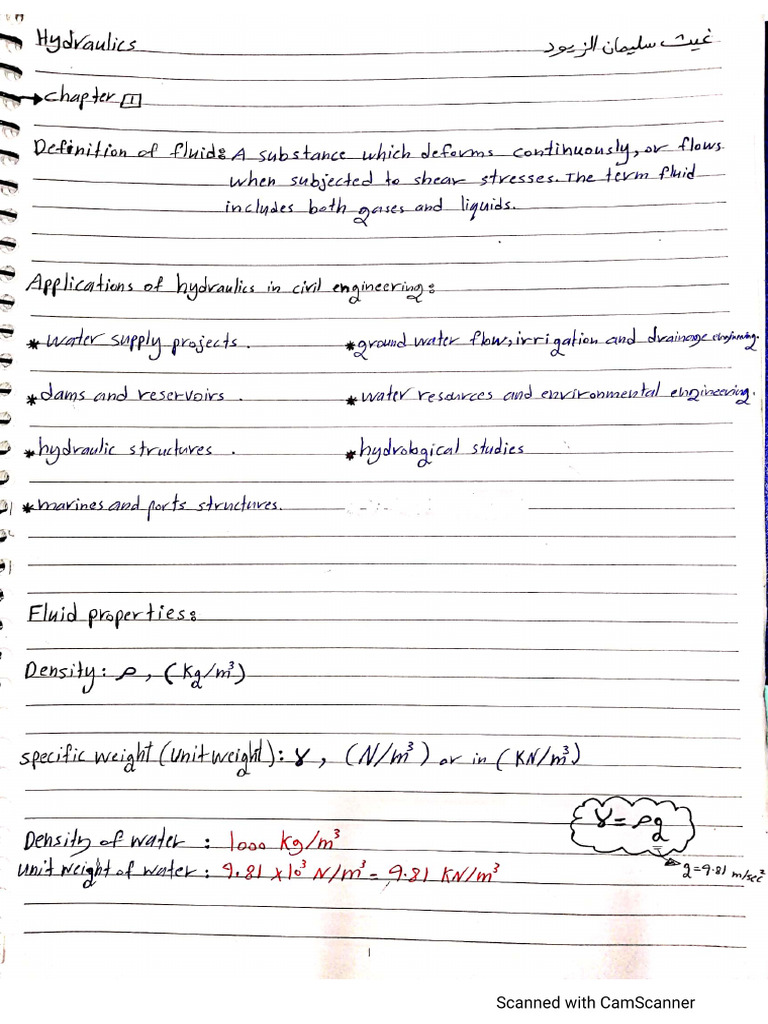 Hydraulics
غيث سليمان الزيود
chapter 1
Definition of fluid: A substance which deforms continuously, or flows
when subjected to shear stresses. The term fluid
includes both gases and liquids.
Applications of hydraulics in civil engineering:
* water supply projects.
* ground water flow, irrigation and drainage engineering.
* dams and reservoirs.
* water resources and environmental engineering.
* hydraulic structures.
* hydrological studies
* marines and ports structures.
Fluid properties:
Density: ρ, (Kg/m³)
specific weight (unit weight): γ, (N/m³) or in (KN/m³)
γ = ρg
Density of water : 1000 kg/m³
g = 9.81 m/sec²
unit weight of water: 9.81 × 10³ N/m³ = 9.81 KN/m³
1
Scanned with CamScanner